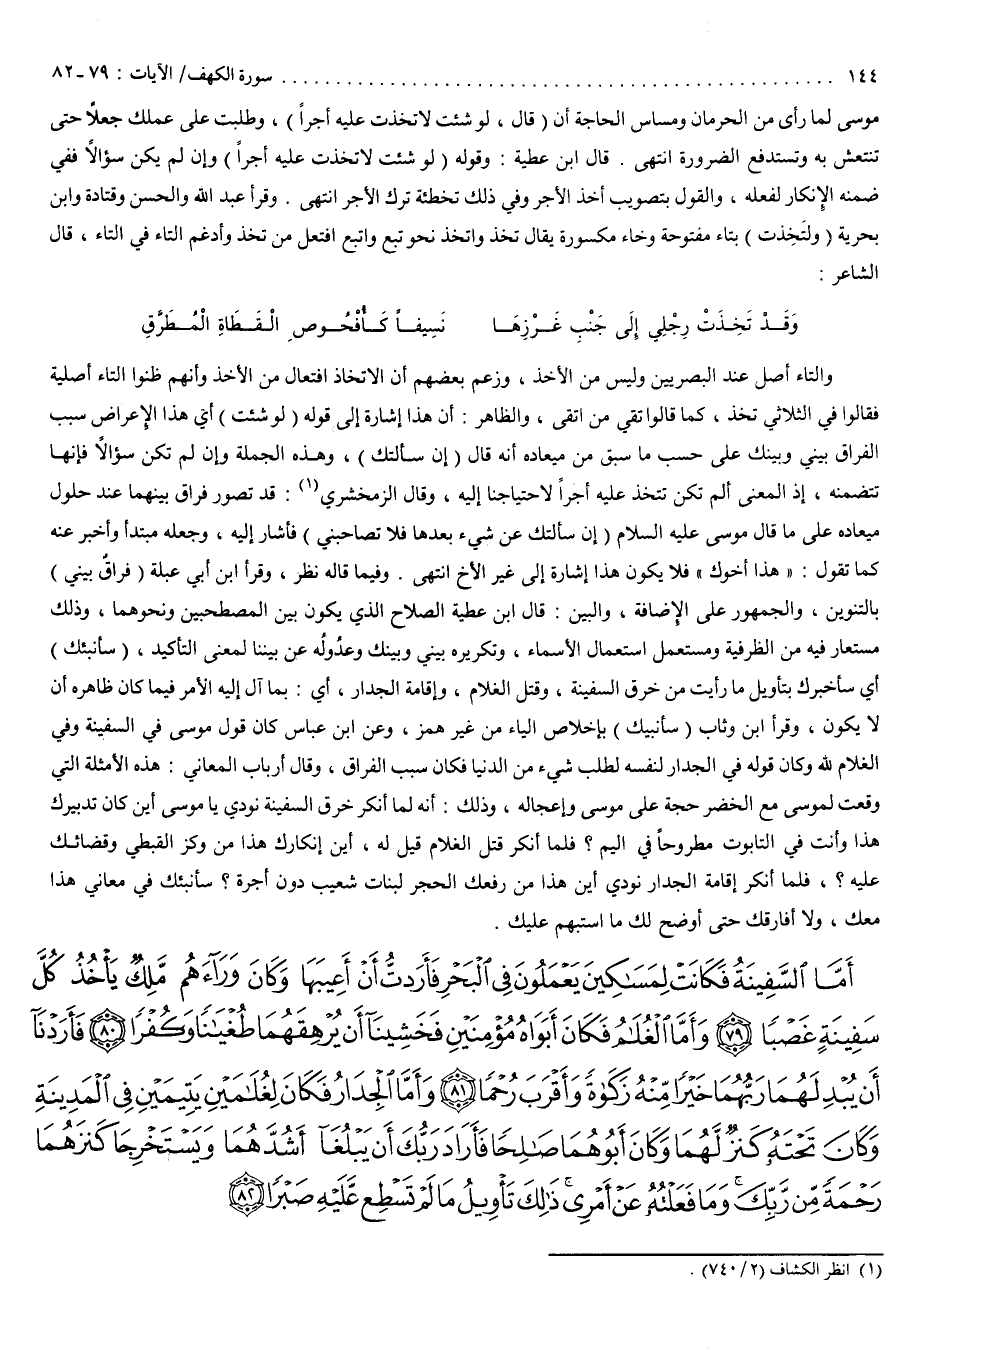 ١٤٤ ............................................................ سورة الكهف/ الآيات : ٧٩-٨٢
موسى لما رأى من الحرمان ومساس الحاجة أن ( قال ، لو شئت لاتخذت عليه أجراً ) ، وطلبت على عملك جعلاً حتى
تنتعش به وتستدفع الضرورة انتهى . قال ابن عطية : وقوله ( لو شئت لاتخذت عليه أجراً ) وإن لم يكن سؤالاً ففي
ضمنه الإنكار لفعله ، والقول بتصويب أخذ الأجر وفي ذلك تخطئة ترك الأجر انتهى . وقرأ عبد الله والحسن وقتادة وابن
بحرية ( ولَتَخِذت ) بتاء مفتوحة وخاء مكسورة يقال تخذ واتخذ نحو تبع واتبع افتعل من تخذ وأدغم التاء في التاء ، قال
الشاعر :
وَقَدْ تَخِذَتْ رِجْلِي إِلَى جَنْبِ غَرْزِهَا نَسِيفاً كَأُفْحُوصِ الْقَطَاةِ الْمُطَرَّقِ
والتاء أصل عند البصريين وليس من الأخذ ، وزعم بعضهم أن الاتخاذ افتعال من الأخذ وأنهم ظنوا التاء أصلية
فقالوا في الثلاثي تخذ ، كما قالوا تقي من اتقى ، والظاهر : أن هذا إشارة إلى قوله ( لو شئت ) أي هذا الإعراض سبب
الفراق بيني وبينك على حسب ما سبق من ميعاده أنه قال ( إن سألتك ) ، وهذه الجملة وإن لم تكن سؤالاً فإنها
تتضمنه ، إذ المعنى ألم تكن تتخذ عليه أجراً لاحتياجنا إليه ، وقال الزمخشري(١) : قد تصور فراق بينهما عند حلول
ميعاده على ما قال موسى عليه السلام ( إن سألتك عن شيء بعدها فلا تصاحبني ) فأشار إليه ، وجعله مبتدأ وأخبر عنه
كما تقول : « هذا أخوك » فلا يكون هذا إشارة إلى غير الأخ انتهى . وفيما قاله نظر ، وقرأ ابن أبي عبلة ( فراقٌ بيني )
بالتنوين ، والجمهور على الإضافة ، والبين : قال ابن عطية الصلاح الذي يكون بين المصطحبين ونحوهما ، وذلك
مستعار فيه من الظرفية ومستعمل استعمال الأسماء ، وتكريره بيني وبينك وعدُولُه عن بيننا لمعنى التأكيد ، ( سأنبئك )
أي سأخبرك بتأويل ما رأيت من خرق السفينة ، وقتل الغلام ، وإقامة الجدار ، أي : بما آل إليه الأمر فيما كان ظاهره أن
لا يكون ، وقرأ ابن وثاب ( سأنبيك ) بإخلاص الياء من غير همز ، وعن ابن عباس كان قول موسى في السفينة وفي
الغلام لله وكان قوله في الجدار لنفسه لطلب شيء من الدنيا فكان سبب الفراق ، وقال أرباب المعاني : هذه الأمثلة التي
وقعت لموسى مع الخضر حجة على موسى وإعجاله ، وذلك : أنه لما أنكر خرق السفينة نودي يا موسى أين كان تدبيرك
هذا وأنت في التابوت مطروحاً في اليم ؟ فلما أنكر قتل الغلام قيل له ، أين إنكارك هذا من وكز القبطي وقضائك
عليه ؟ ، فلما أنكر إقامة الجدار نودي أين هذا من رفعك الحجر لبنات شعيب دون أجرة ؟ سأنبئك في معاني هذا
معك ، ولا أفارقك حتى أوضح لك ما استبهم عليك .
أَمَّا ٱلسَّفِينَةُ فَكَانَتْ لِمَسَٰكِينَ يَعْمَلُونَ فِى ٱلْبَحْرِ فَأَرَدتُّ أَنْ أَعِيبَهَا وَكَانَ وَرَآءَهُم مَّلِكٌ يَأْخُذُ كُلَّ
سَفِينَةٍ غَصْبًا ٧٩ وَأَمَّا ٱلْغُلَٰمُ فَكَانَ أَبَوَاهُ مُؤْمِنَيْنِ فَخَشِينَآ أَن يُرْهِقَهُمَا طُغْيَٰنًا وَكُفْرًا ٨٠ فَأَرَدْنَآ
أَن يُبْدِلَهُمَا رَبُّهُمَا خَيْرًا مِّنْهُ زَكَوٰةً وَأَقْرَبَ رُحْمًا ٨١ وَأَمَّا ٱلْجِدَارُ فَكَانَ لِغُلَٰمَيْنِ يَتِيمَيْنِ فِى ٱلْمَدِينَةِ
وَكَانَ تَحْتَهُۥ كَنزٌ لَّهُمَا وَكَانَ أَبُوهُمَا صَٰلِحًا فَأَرَادَ رَبُّكَ أَن يَبْلُغَآ أَشُدَّهُمَا وَيَسْتَخْرِجَا كَنزَهُمَا
رَحْمَةً مِّن رَّبِّكَ ۚ وَمَا فَعَلْتُهُۥ عَنْ أَمْرِى ۚ ذَٰلِكَ تَأْوِيلُ مَا لَمْ تَسْطِع عَّلَيْهِ صَبْرًا ٨٢
(١) انظر الكشاف (٧٤٠/٢) .